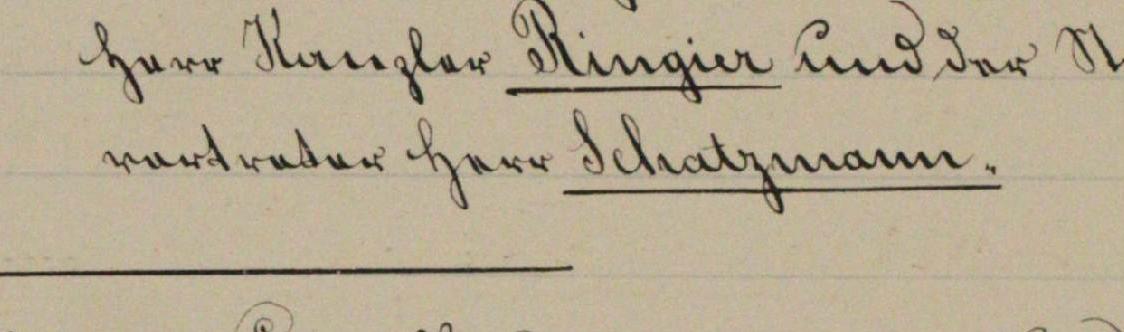 Herr Kanzler Ringier und der St
vertreter Herr Schatzmann.